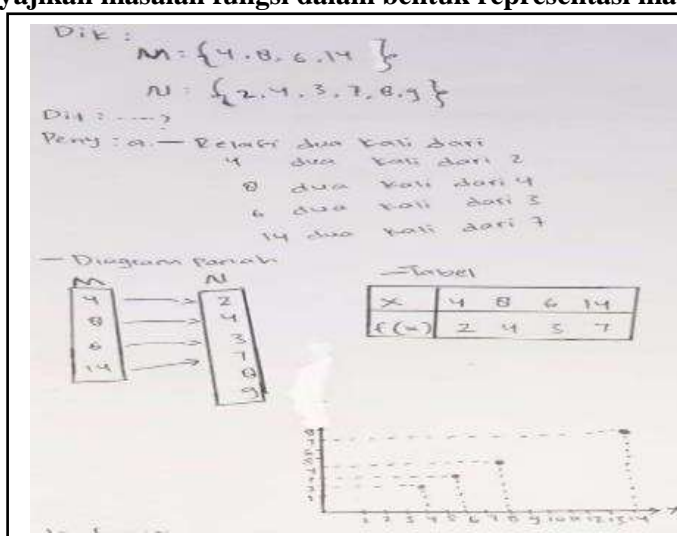 yajikan masalah fungsi dalam bentuk representasi ma
Dik :
M = {4, 8, 6, 14 }
N : {2, 4, 3, 7, 8, 9}
Dit : ....?
Peny : a. — Relasi dua kali dari
4 dua kali dari 2
8 dua kali dari 4
6 dua kali dari 3
14 dua kali dari 7
— Diagram Panah
M N
4 2
8 4
6 3
14 7
8
9
— Tabel
x 4 8 6 14
f(x) 2 4 3 7
1 2 3 4 5 6 7 8 9 10 11 12 13 14 x